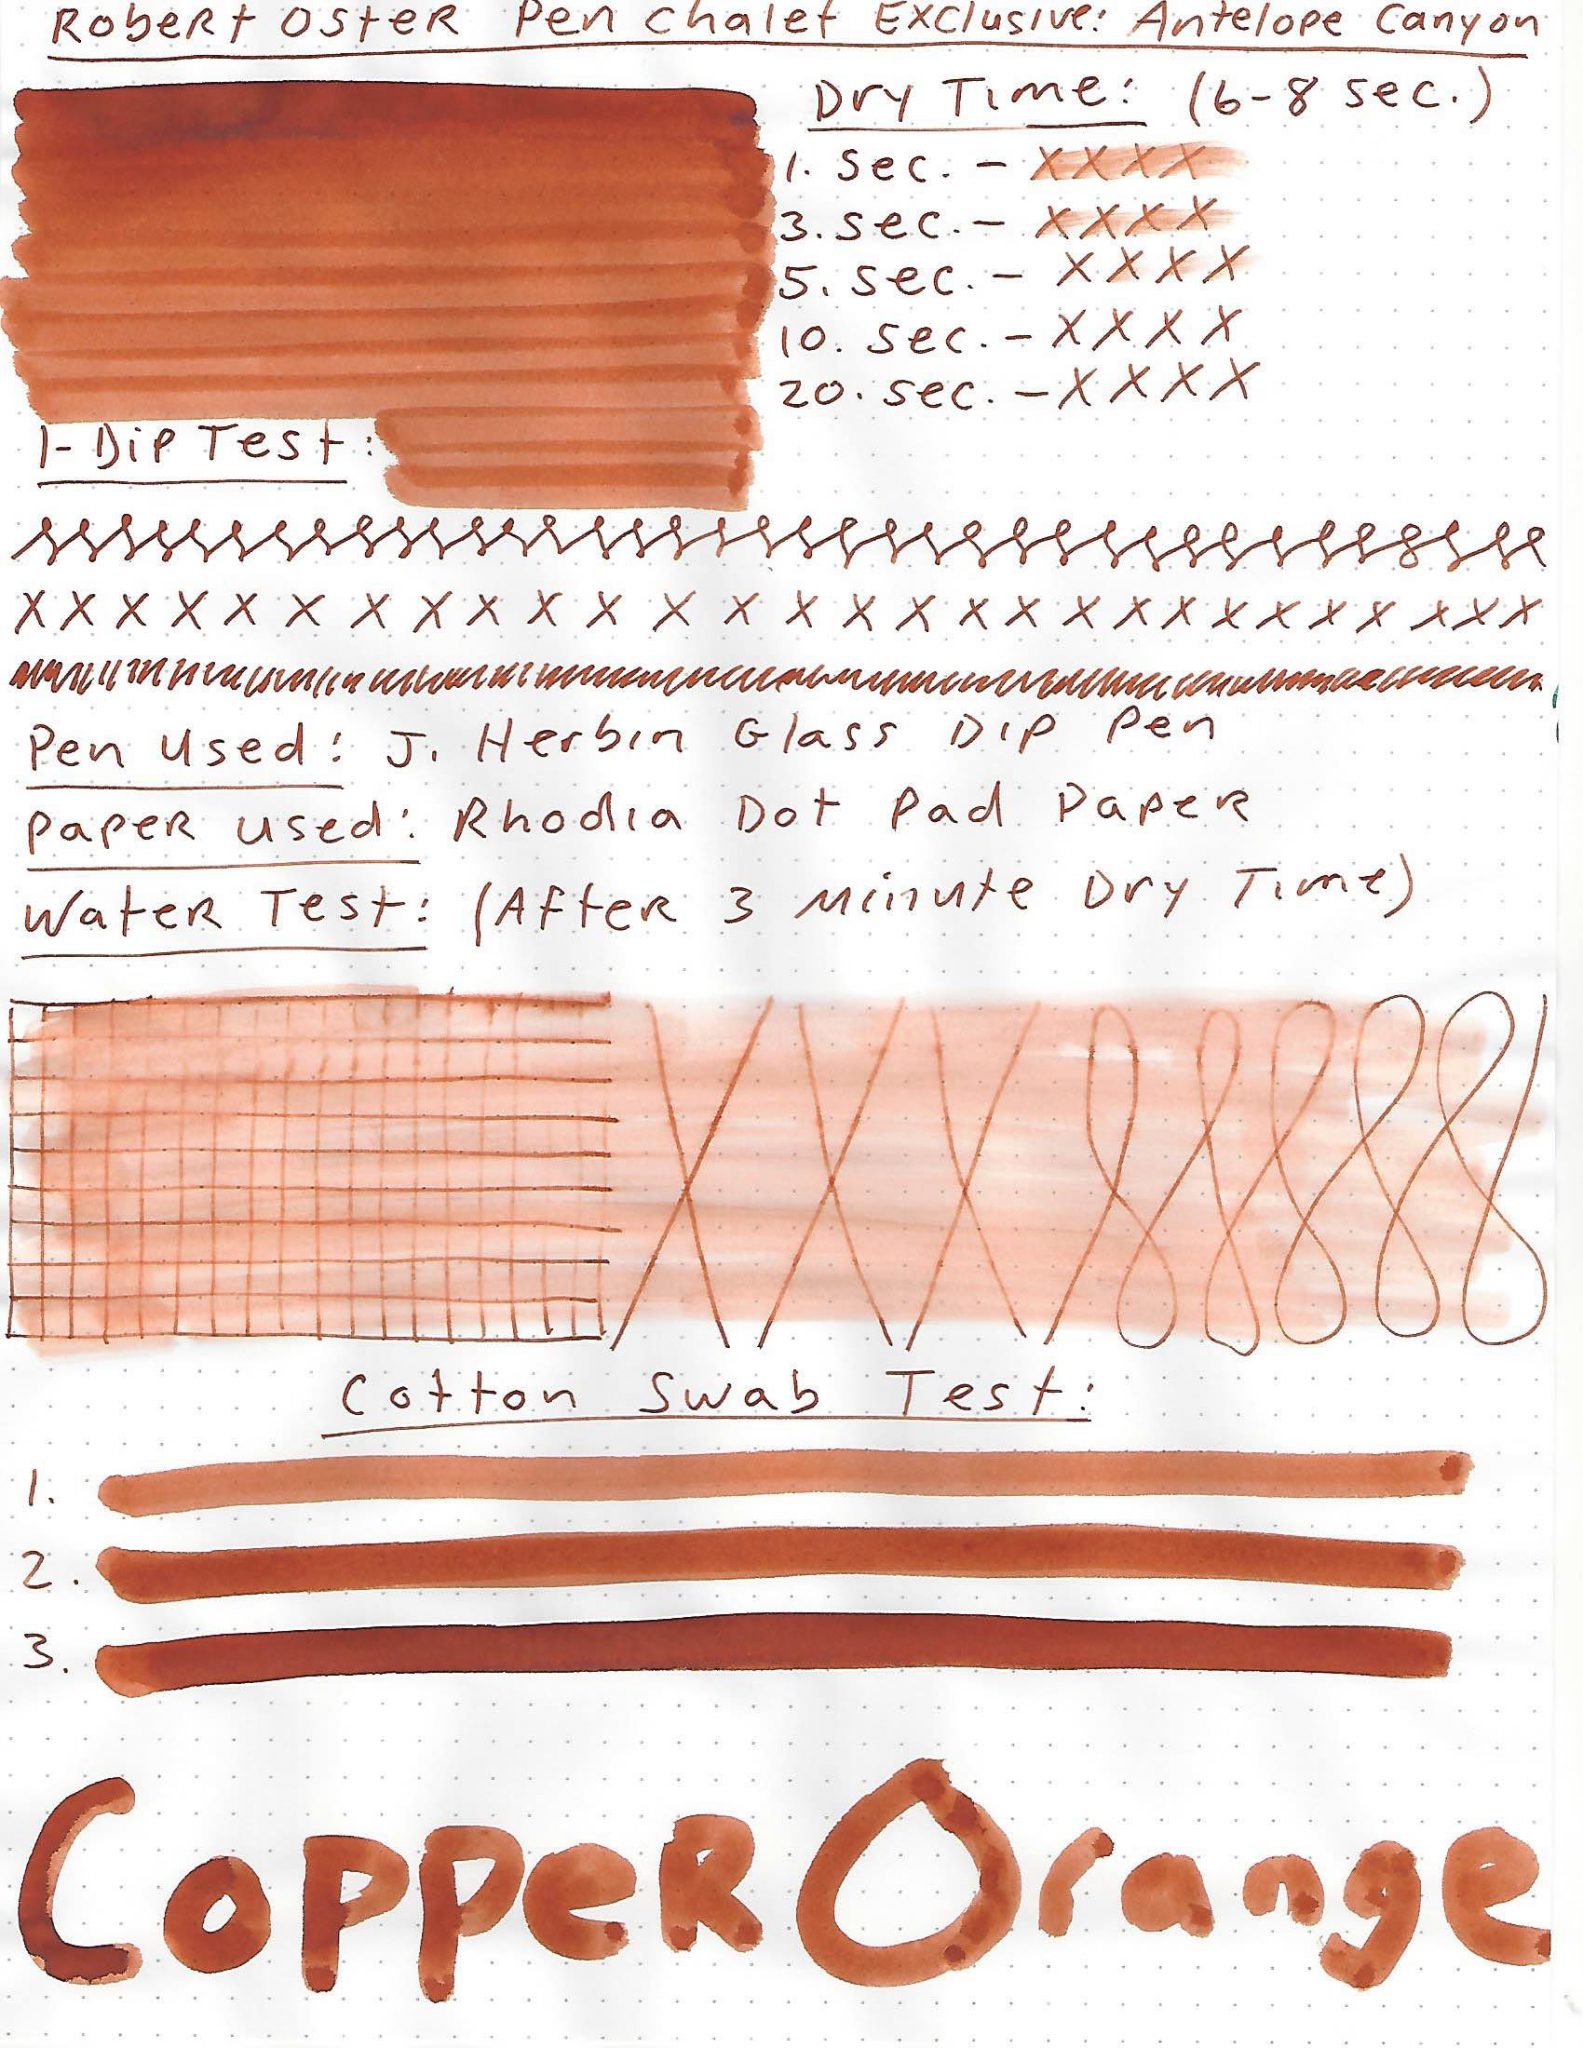 Robert Oster Pen Chalet Exclusive: Antelope Canyon
Dry Time: (6-8 sec.)
1. sec. - XXXX
3. sec. - XXXX
5. sec. - XXXX
10. sec. - XXXX
20. sec. - XXXX
1-Dip Test:
X X X X X X X X X X X X X X X X X X X X X X X X X X X X
Pen Used: J. Herbin Glass Dip Pen
Paper Used: Rhodia Dot Pad Paper
Water Test: (After 3 Minute Dry Time)
Cotton Swab Test:
1.
2.
3.
Copper Orange